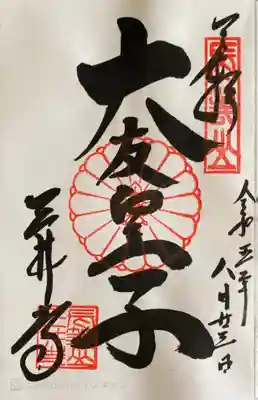 奉拝
令和五年
八月廿三日
大友皇子
三井寺